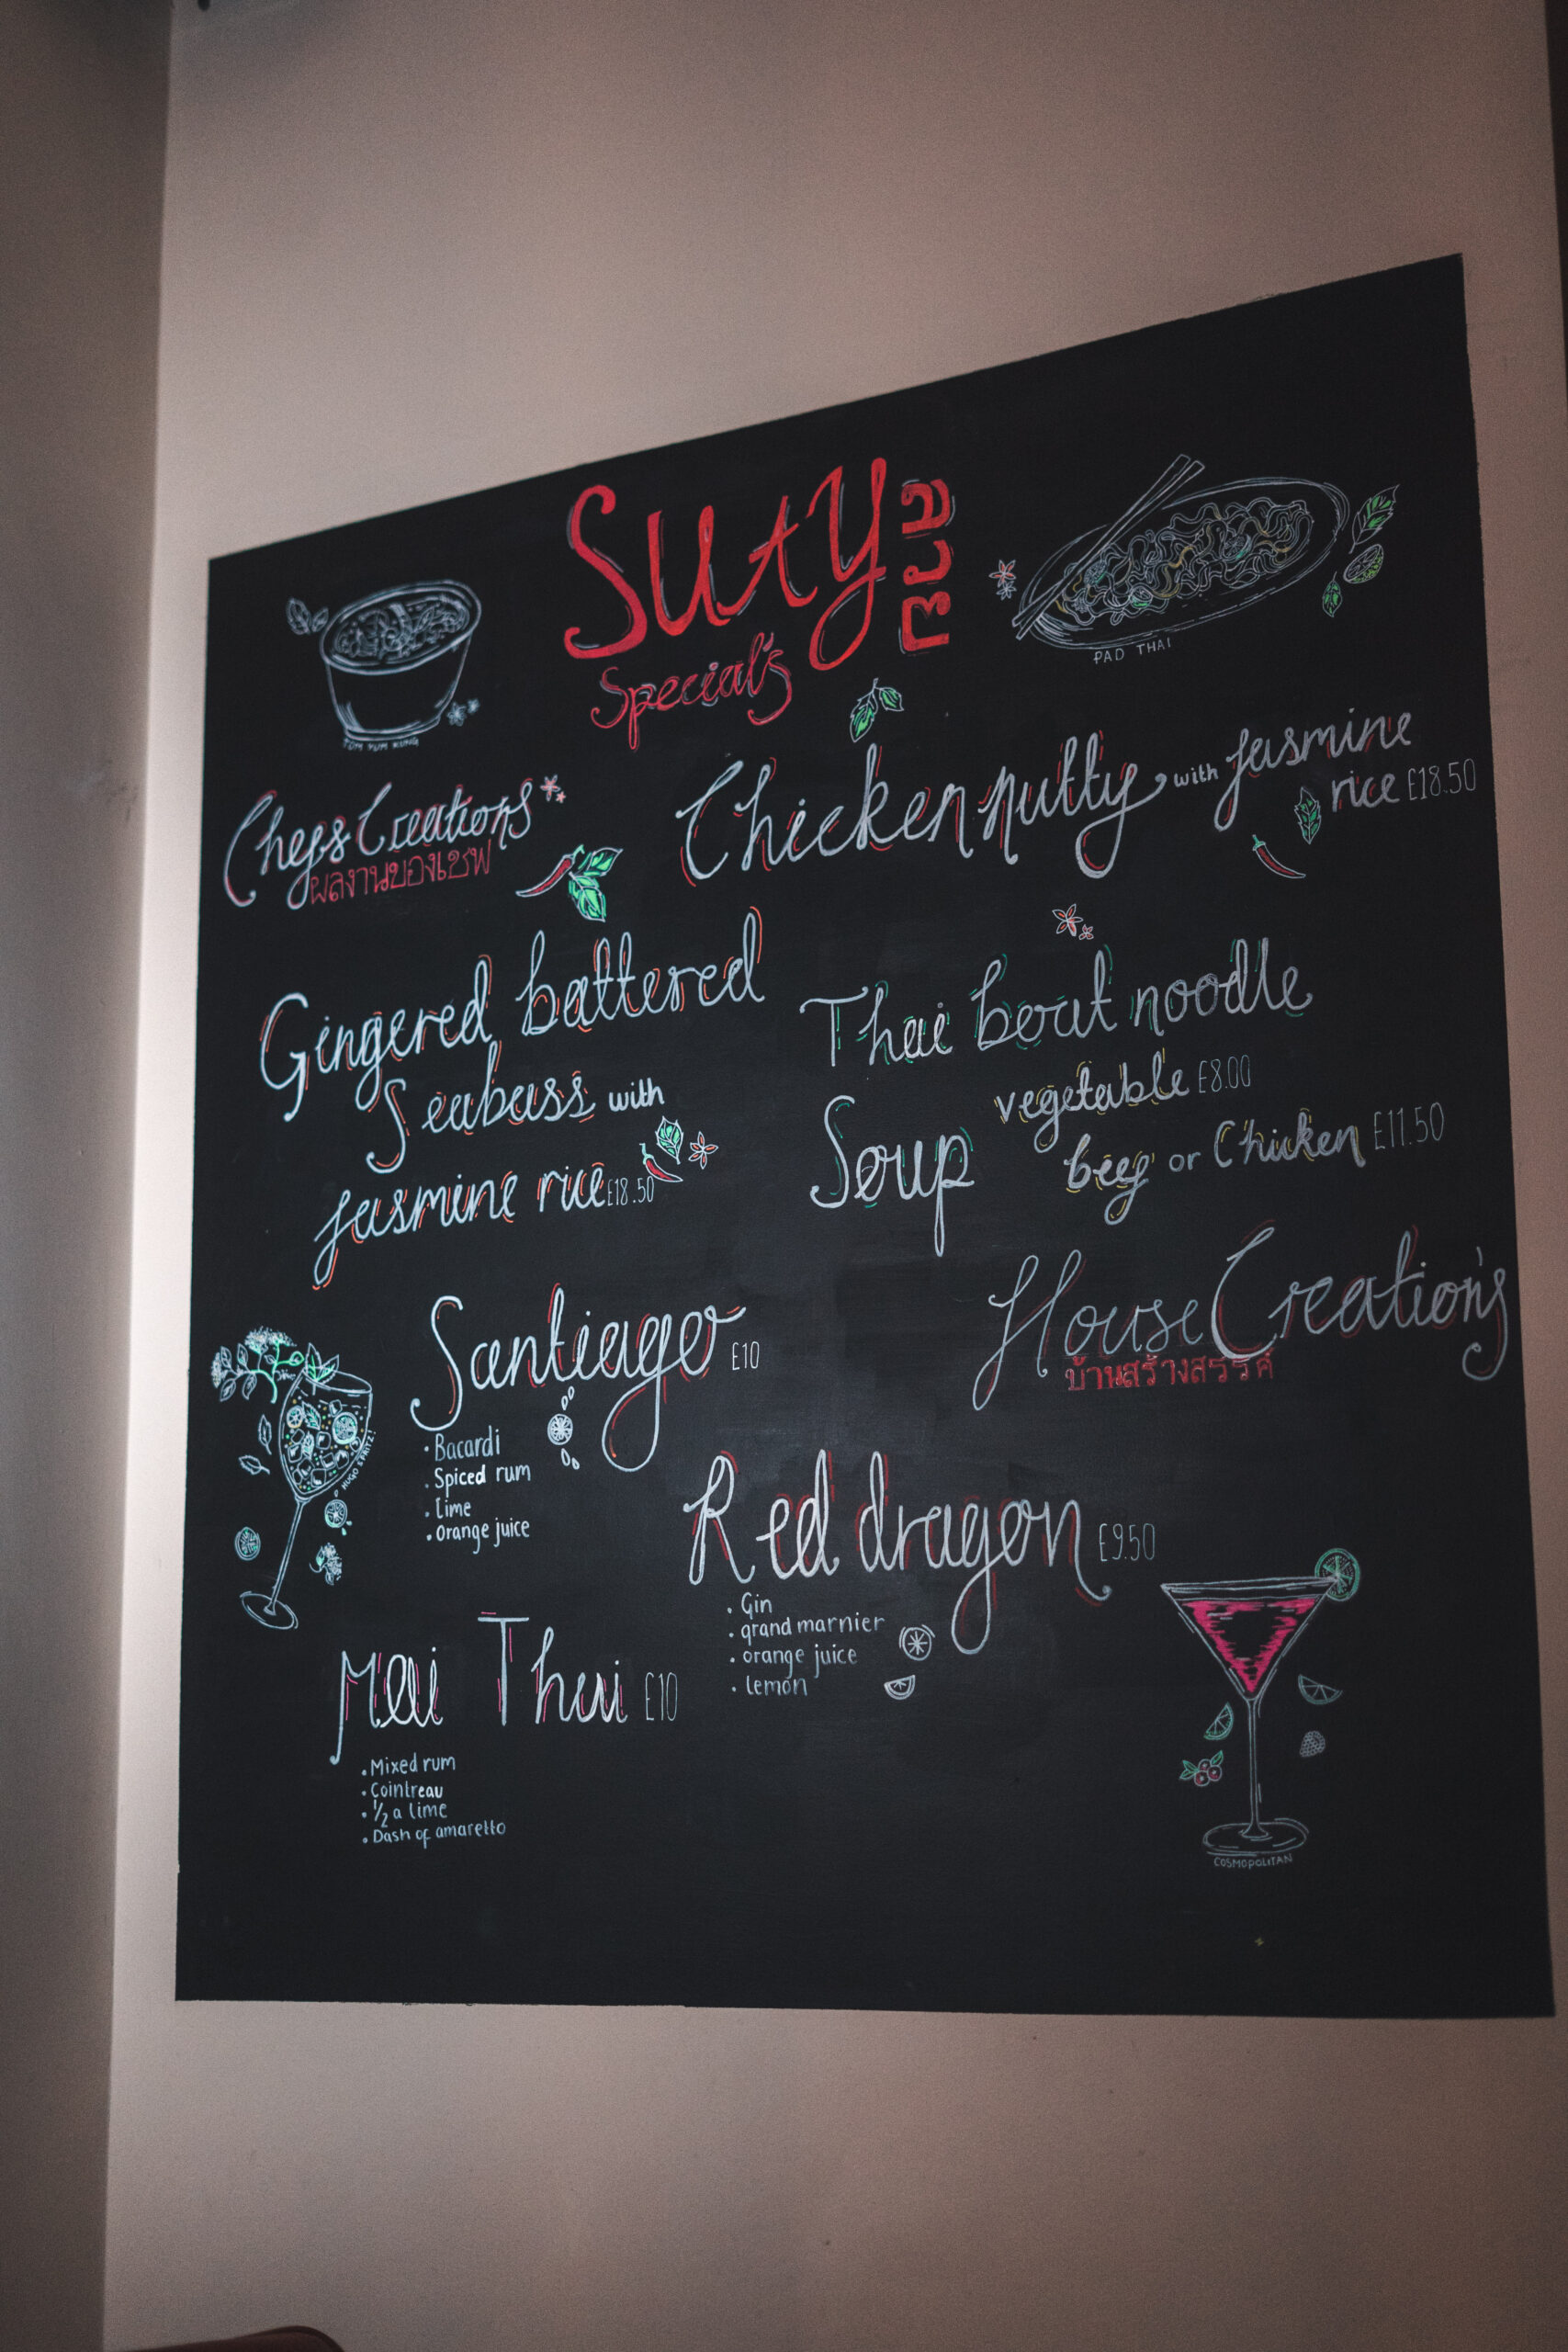 Suay
สวย
Special's
PAD THAI
TOM YUM KUNG
Chefs Creations
ผลงานของเชฟ
Chicken nutty with jasmine
rice £18.50
Gingered battered
Seabass with
jasmine rice £18.50
Thai boat noodle
Soup
vegetable £8.00
beef or Chicken £11.50
House Creation's
บ้านสร้างสรรค์
Santiago £10
• Bacardi
• Spiced rum
• Lime
• Orange juice
HUGO SPRITZ!
Red dragon £9.50
• Gin
• grand marnier
• orange juice
• lemon
Mai Thai £10
• Mixed rum
• Cointreau
• 1/2 a lime
• Dash of amaretto
COSMOPOLITAN